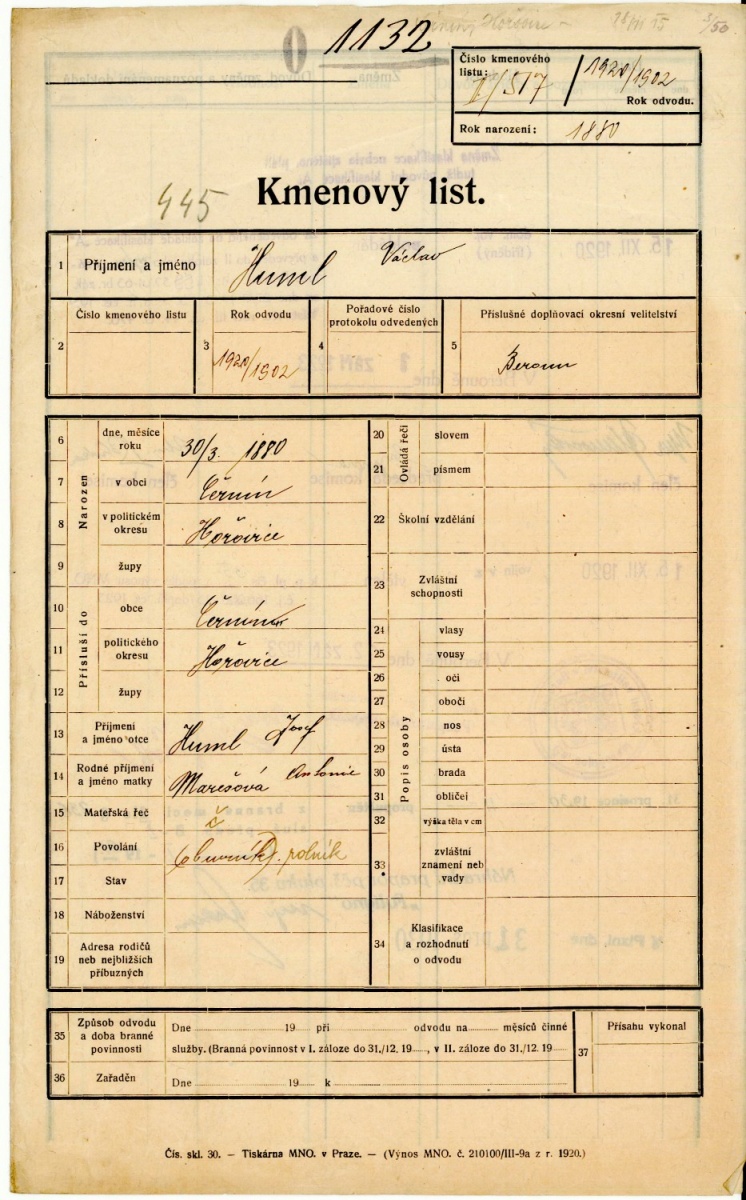 0 1132
Číslo kmenového
listu:
II/517 / 1920/1902
Rok odvodu.
Rok narození: 1880
445
Kmenový list.
1 Příjmení a jméno Huml Václav
2 Číslo kmenového listu
3 Rok odvodu
1920/1902
4 Pořadové číslo
protokolu odvedených
5 Příslušné doplňovací okresní velitelství
Beroun
Narozen
6 dne, měsíce
roku 30/3. 1880
7 v obci Čermín
8 v politickém
okresu Hořovice
9 župy
Přísluší do
10 obce Čermín
11 politického
okresu Hořovice
12 župy
13 Příjmení
a jméno otce Huml Josef
14 Rodné příjmení
a jméno matky Marešová Antonie
15 Mateřská řeč č
16 Povolání obuvník), rolník
17 Stav
18 Náboženství
19 Adresa rodičů
neb nejbližších
příbuzných
Ovládá řeči
20 slovem
21 písmem
22 Školní vzdělání
23 Zvláštní
schopnosti
Popis osoby
24 vlasy
25 vousy
26 oči
27 obočí
28 nos
29 ústa
30 brada
31 obličej
32 výška těla v cm
33 zvláštní
znamení neb
vady
34 Klasifikace
a rozhodnutí
o odvodu
35 Způsob odvodu
a doba branné
povinnosti
Dne 19 při odvodu na měsíců činné
služby. (Branná povinnost v I. záloze do 31./12. 19 , v II. záloze do 31./12. 19
36 Zařaděn Dne 19 k
37 Přísahu vykonal
Čís. skl. 30. — Tiskárna MNO. v Praze. — (Výnos MNO. č. 210100/III-9a z r. 1920.)